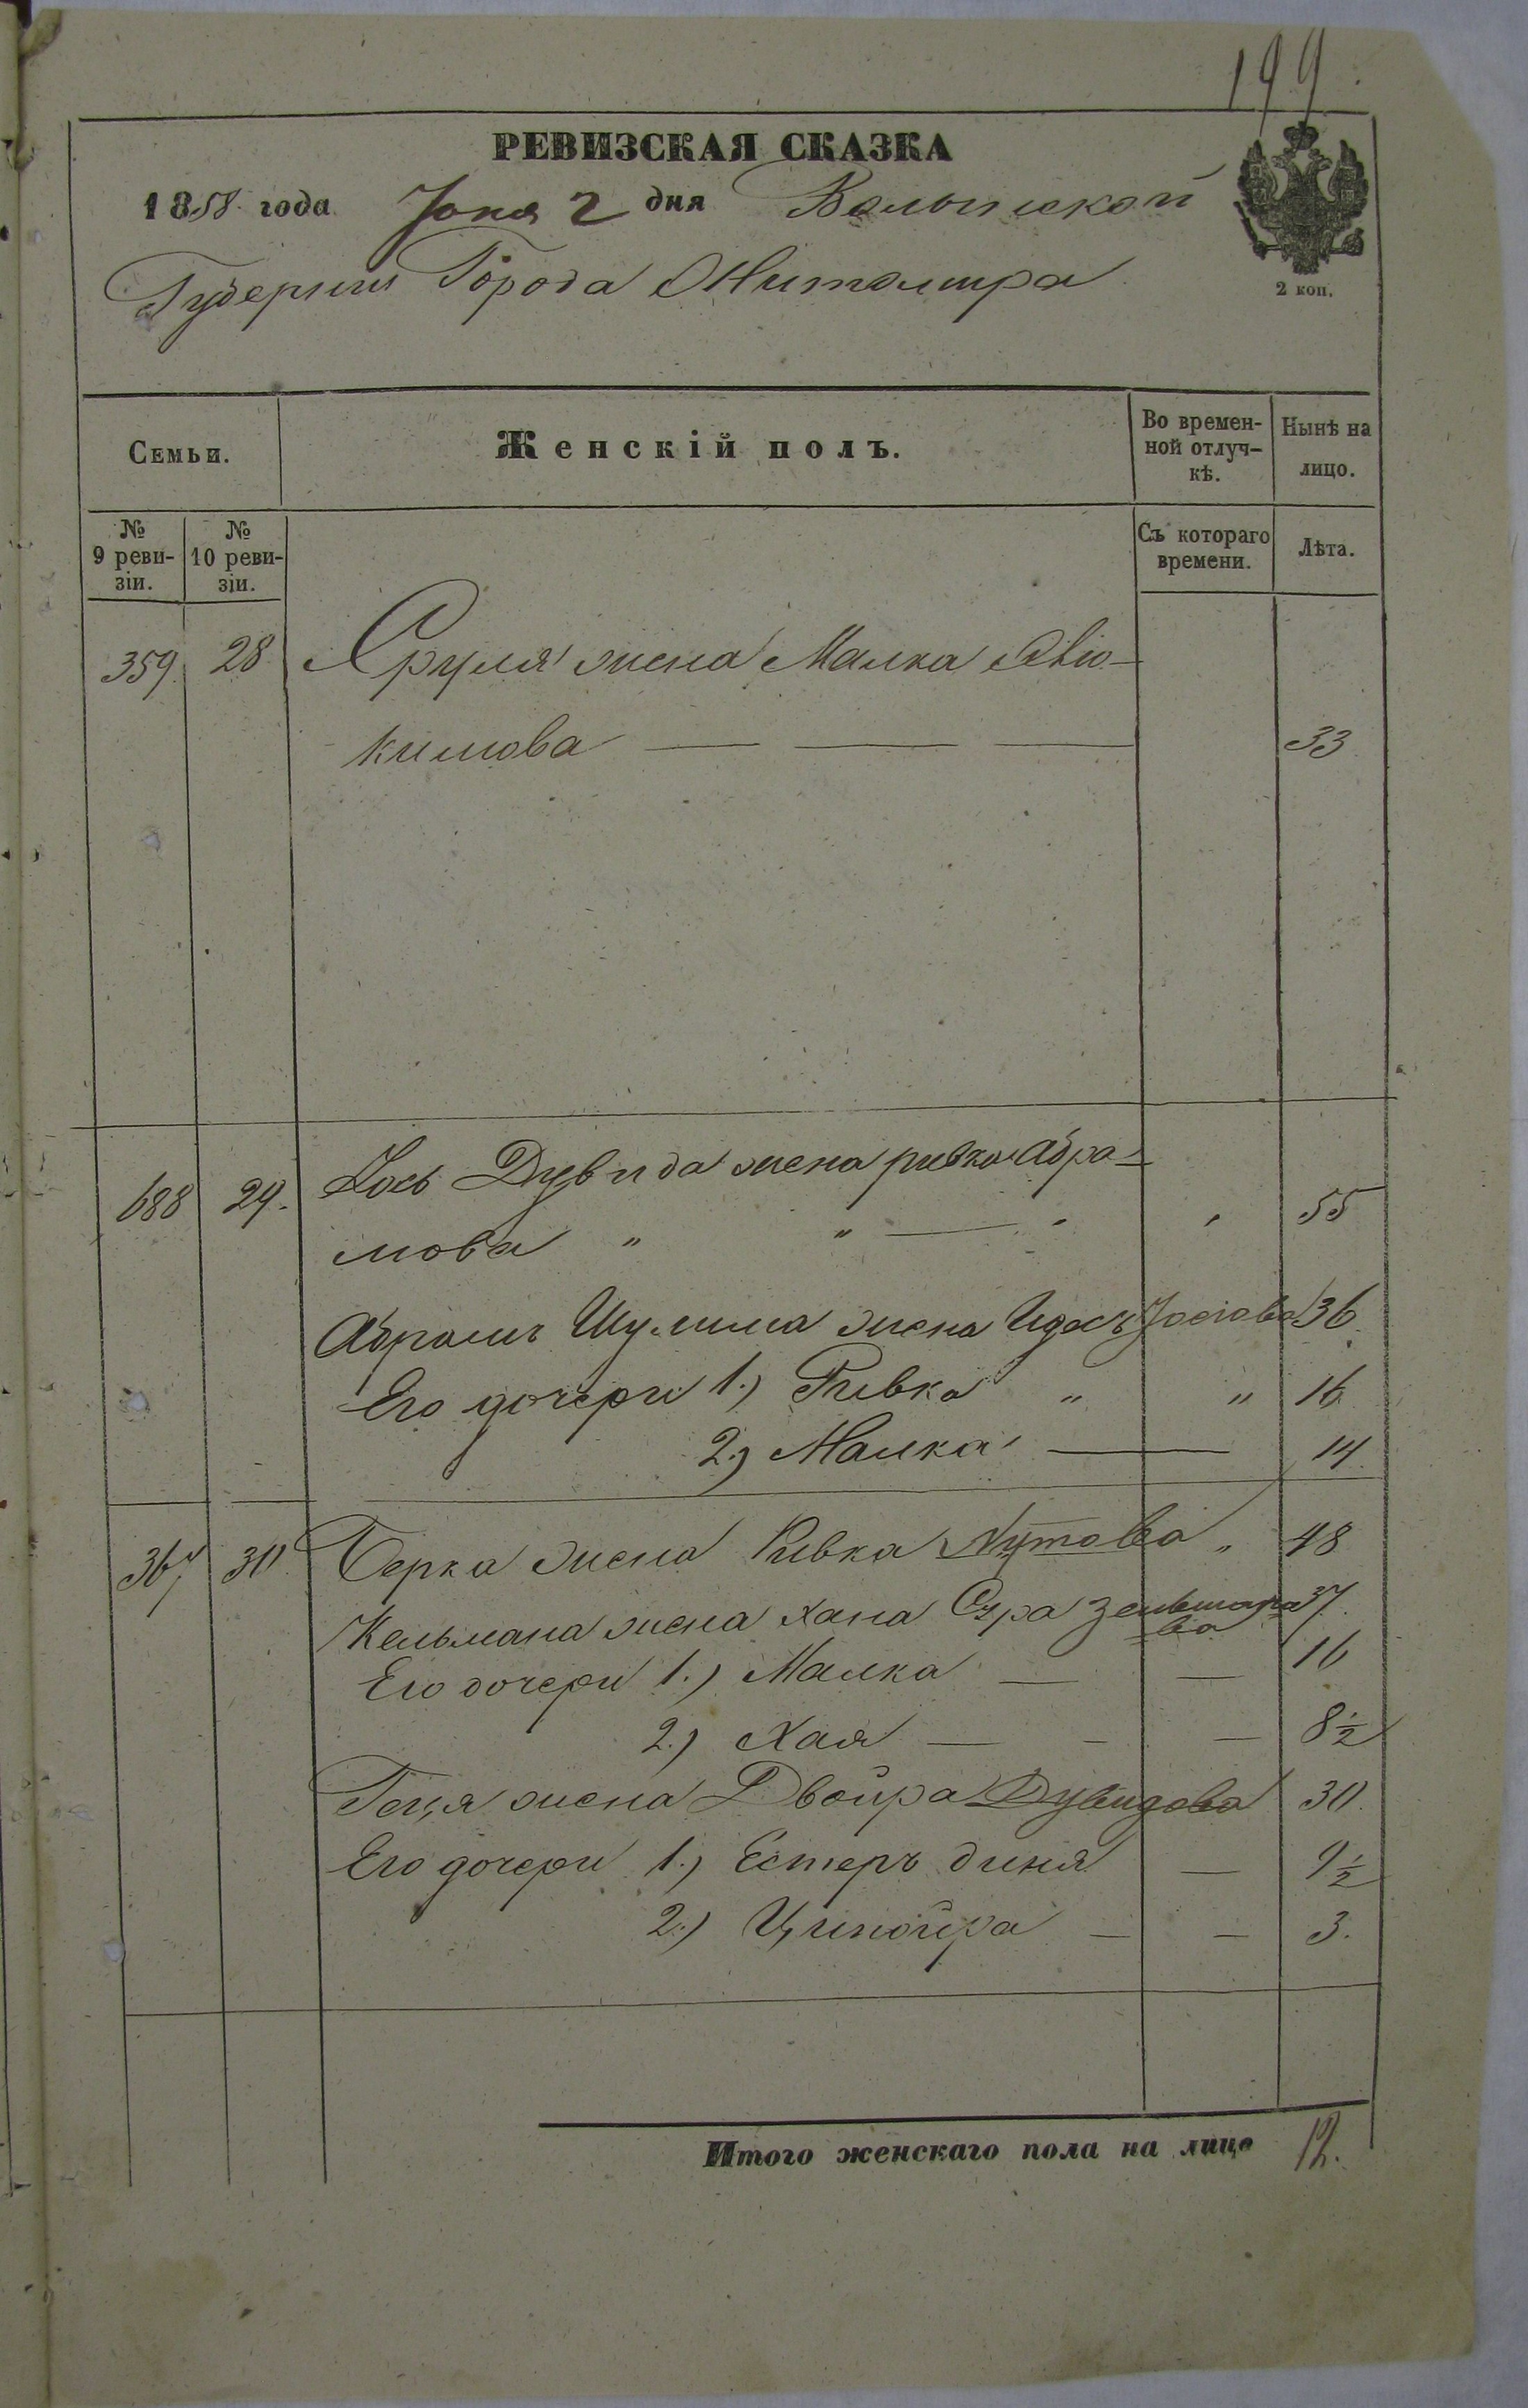 199.
РЕВИЗСКАЯ СКАЗКА
1858 года Іюня 2 дня Волынской
Губерніи Города Житомира
2 коп.
Семьи.
Женскій полъ.
Во времен-
ной отлуч-
кѣ.
Нынѣ на
лицо.
№
9 реви-
зіи.
№
10 реви-
зіи.
Съ котораго
времени.
Лѣта.
359 28 Сруля жена Малка
кимова 33
688 29. Іось Дувида жена ривка Абра-
мова " " 55
Абрамъ Шулима жена Идесъ Іосіова 36
Его дочери 1.) Ривка " " 16
2.) Малка 14.
30 Берка жена Ривка Нутова " 48
Кельмана жена хана Сура 37.
ва
Его дочери 1.) Малка 16
2.) Хая 8½
Геця жена Двойра Дувидова 30.
Его дочери 1.) Естеръ диня 9½
2.) Ципойра 3.
Итого женскаго пола на лицо 12.